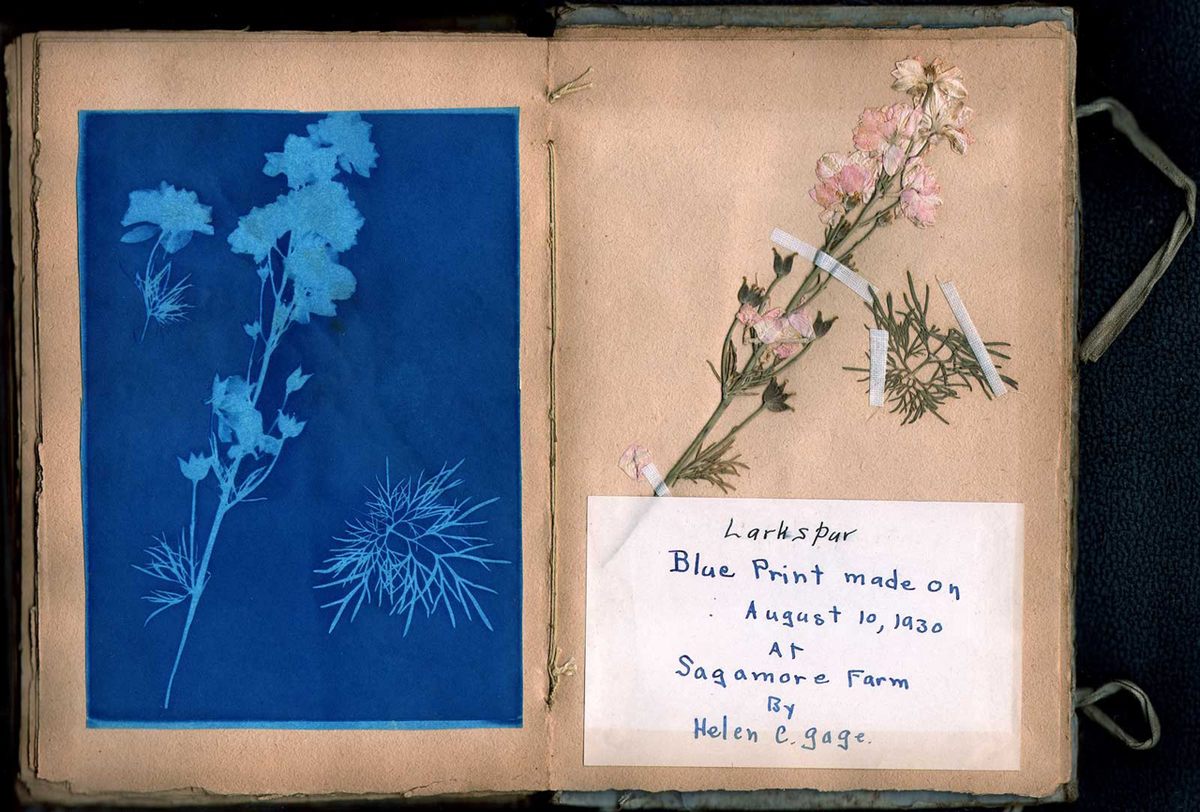 Larkspur
Blue Print made on
August 10, 1930
At
Sagamore Farm
By
Helen C. Gage.